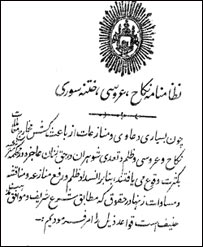 نظامنامه نکاح، عروسی، ختنه سوری
چون بسیاری دعاوی و منازعات از باعث کثرت مخارج
نکاح و عروسی و ظلم و تعدی شوهران در حق زنان عاجزه در
بکثرت وقوع می یافتند، بنابر انسداد ظلم و رفع منازعه و مناقشه
و مساوات زنها در حقوق که مطابق شرع شریف و موافق
حنیف است قواعد ذیل را امر فرمودیم